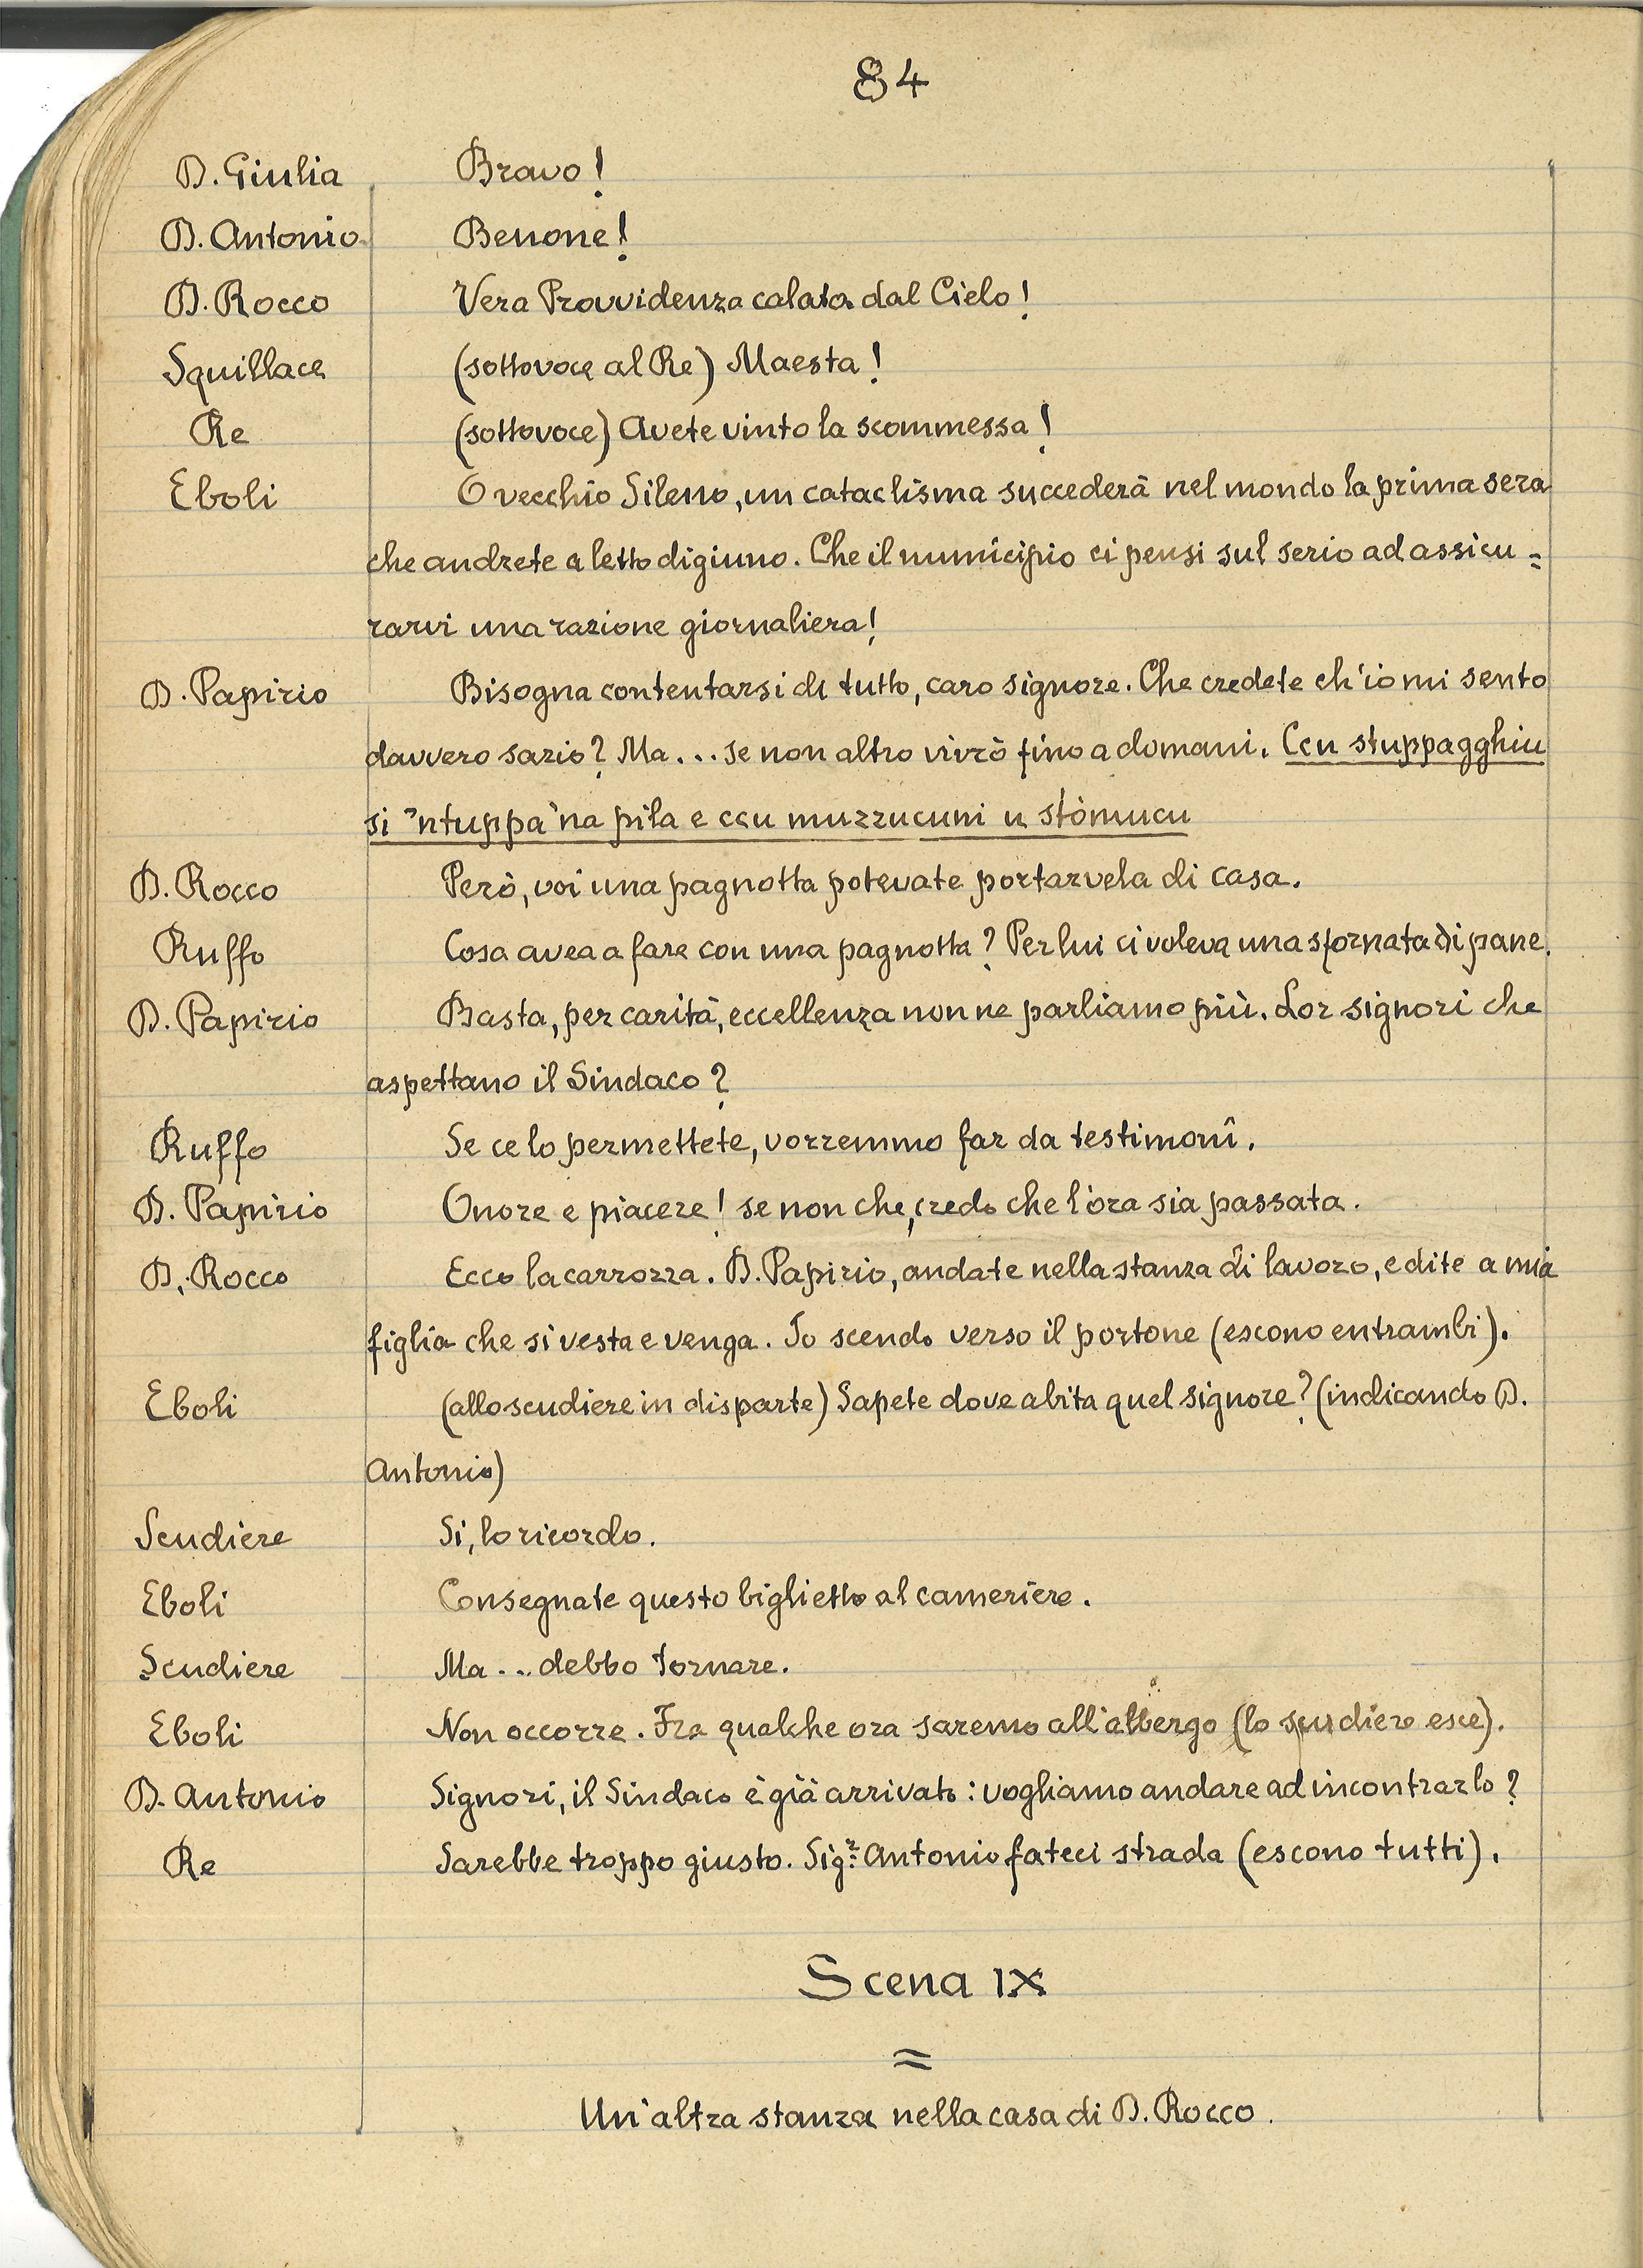 84
D. Giulia Bravo!
D. Antonio Benone!
D. Rocco Vera Provvidenza calata dal Cielo!
Squillace (sottovoce al Re) Maesta!
Re (sottovoce) Avete vinto la scommessa!
Eboli O vecchio Sileno, un cataclisma succederà nel mondo la prima sera
che andrete a letto digiuno. Che il municipio ci pensi sul serio ad assicu=
rarvi una razione giornaliera!
D. Papirio Bisogna contentarsi di tutto, caro signore. Che credete ch'io mi sento
davvero sazio? Ma... se non altro vivrò fino a domani. Ccu stuppagghiu
si 'ntuppa 'na pila e ccu muzzucuni u stòmucu
D. Rocco Però, voi una pagnotta potevate portarvela di casa.
Ruffo Cosa avea a fare con una pagnotta? Per lui ci voleva una sfornata di pane.
D. Papirio Basta, per carità, eccellenza non ne parliamo più. Lor signori che
aspettano il Sindaco?
Ruffo Se ce lo permettete, vorremmo far da testimonî.
D. Papirio Onore e piacere! se non che, credo che l'ora sia passata.
D. Rocco Ecco la carrozza. D. Papirio, andate nella stanza di lavoro, e dite a mia
figlia che si vesta e venga. Io scendo verso il portone (escono entrambi).
Eboli (allo scudiere in disparte) Sapete dove abita quel signore? (indicando D.
Antonio)
Scudiere Si, lo ricordo.
Eboli Consegnate questo biglietto al cameriere.
Scudiere Ma... debbo tornare.
Eboli Non occorre. Fra qualche ora saremo all'albergo (lo scudiero esce).
D. Antonio Signori, il Sindaco è già arrivato: vogliamo andare ad incontrarlo?
Re Sarebbe troppo giusto. Sigr. Antonio fateci strada (escono tutti).
Scena IX
=
Un'altra stanza nella casa di D. Rocco.